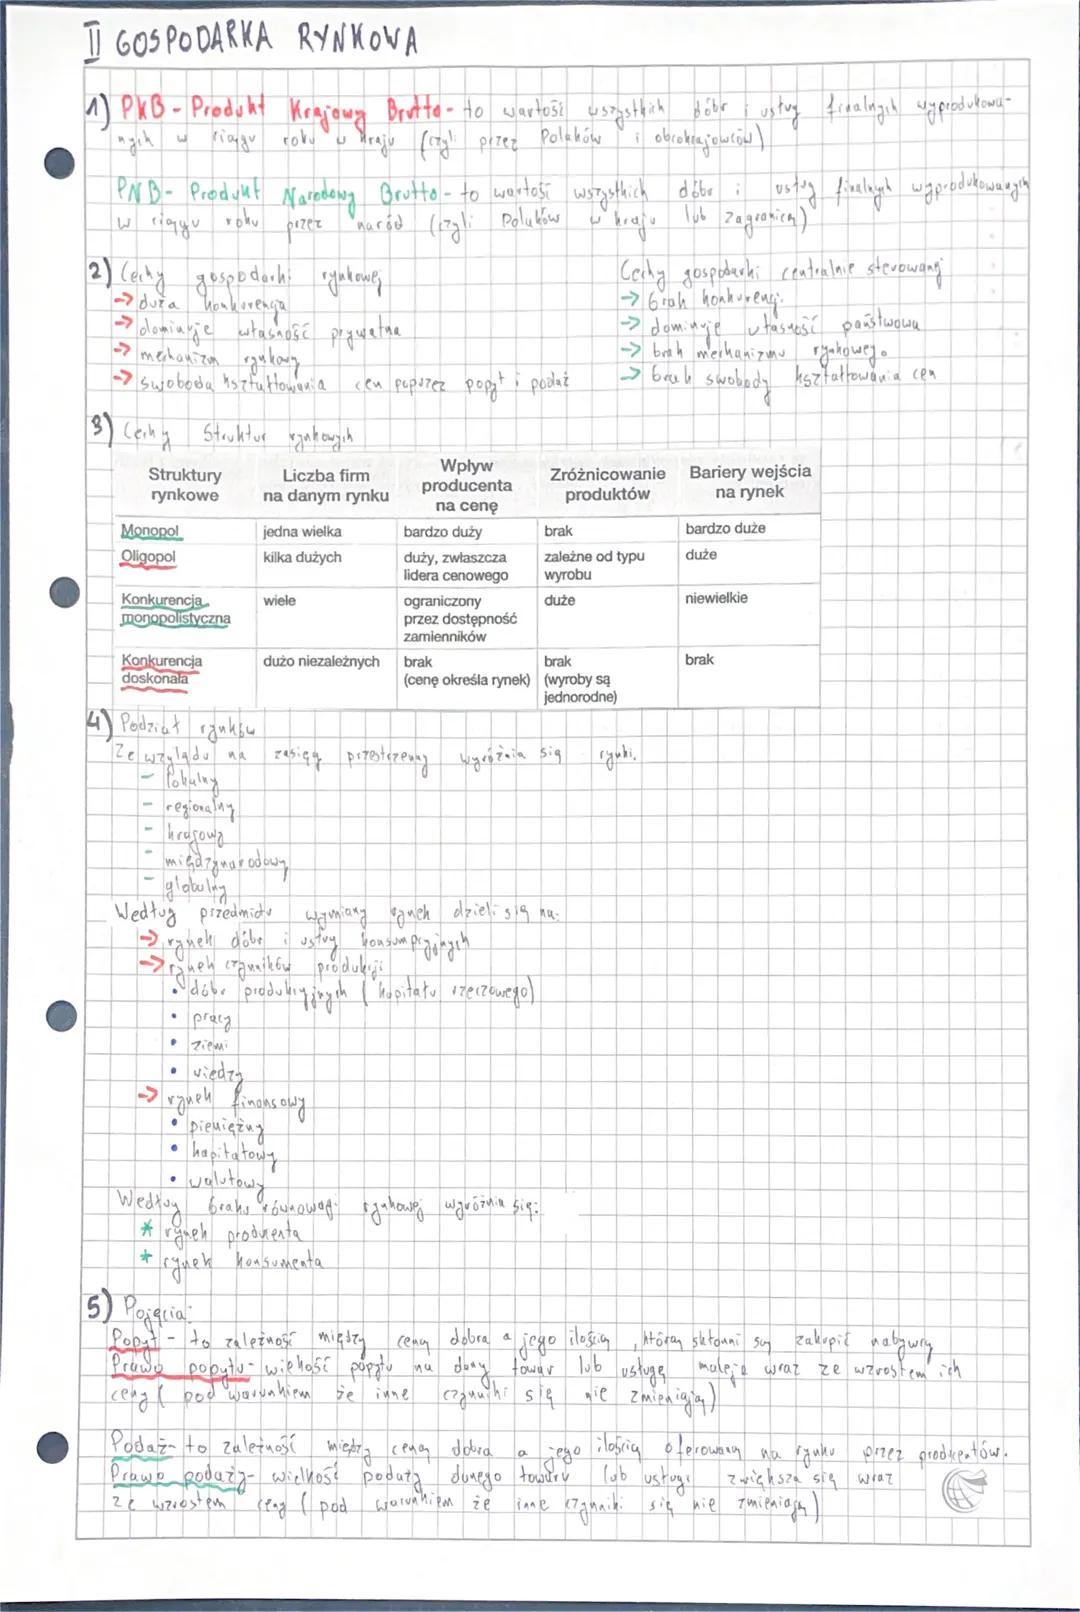 II GOSPODARKA RYNKOWA
1) PKB - Produkt Krajowy Brutto - to wartość wszystkich dóbr i usług finalnych wyprodukowa-
nych w ciągu roku w kraju (czyli przez Polaków i obcokrajowców)
PNB - Produkt Narodowy Brutto - to wartość wszystkich dóbr i usług finalnych wyprodukowanych
w ciągu roku przez naród (czyli Polaków w kraju lub zagranicą)
2) Cechy gospodarki rynkowej
-> duża konkurencja
-> dominuje własność prywatna
-> mechanizm rynkowy
-> swoboda kształtowania cen poprzez popyt i podaż
Cechy gospodarki centralnie sterowanej
-> brak konkurencji
-> dominuje własność państwowa
-> brak mechanizmu rynkowego
-> brak swobody kształtowania cen
3) Cechy struktur rynkowych
Struktury rynkowe | Liczba firm na danym rynku | Wpływ producenta na cenę | Zróżnicowanie produktów | Bariery wejścia na rynek
Monopol | jedna wielka | bardzo duży | brak | bardzo duże
Oligopol | kilka dużych | duży, zwłaszcza lidera cenowego | zależne od typu wyrobu | duże
Konkurencja monopolistyczna | wiele | ograniczony przez dostępność zamienników | duże | niewielkie
Konkurencja doskonała | dużo niezależnych | brak (cenę określa rynek) | brak (wyroby są jednorodne) | brak
4) Podział rynków
Ze względu na zasięg przestrzenny wyróżnia się rynki:
- lokalny
- regionalny
- krajowy
- międzynarodowy
- globalny
Według przedmiotu wymiany rynek dzieli się na:
-> rynek dóbr i usług konsumpcyjnych
-> rynek czynników produkcji
• dóbr produkcyjnych (kapitału rzeczowego)
• pracy
• ziemi
• wiedzy
-> rynek finansowy
• pieniężny
• kapitałowy
• walutowy
Według braku równowagi rynkowej wyróżnia się:
* rynek producenta
* rynek konsumenta
5) Pojęcia:
Popyt - to zależność między ceną dobra a jego ilością, którą skłonni są zakupić nabywcy
Prawo popytu - wielkość popytu na dany towar lub usługę maleje wraz ze wzrostem ich
ceny (pod warunkiem że inne czynniki się nie zmieniają)
Podaż - to zależność między ceną dobra a jego ilością oferowaną na rynku przez producentów.
Prawo podaży - wielkość podaży danego towaru lub usługi zwiększa się wraz
ze wzrostem ceny (pod warunkiem że inne czynniki się nie zmieniają)